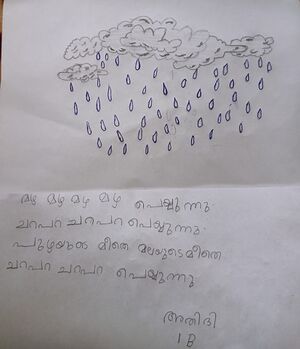 മഴ മഴ മഴ മഴ പെയ്യുന്നു.
ചറപറ ചറപറ പെയ്യുന്നു.
പുഴയുടെ മീതെ മലയുടെ മീതെ
ചറപറ ചറപറ പെയ്യുന്നു
അതിദി
1 B